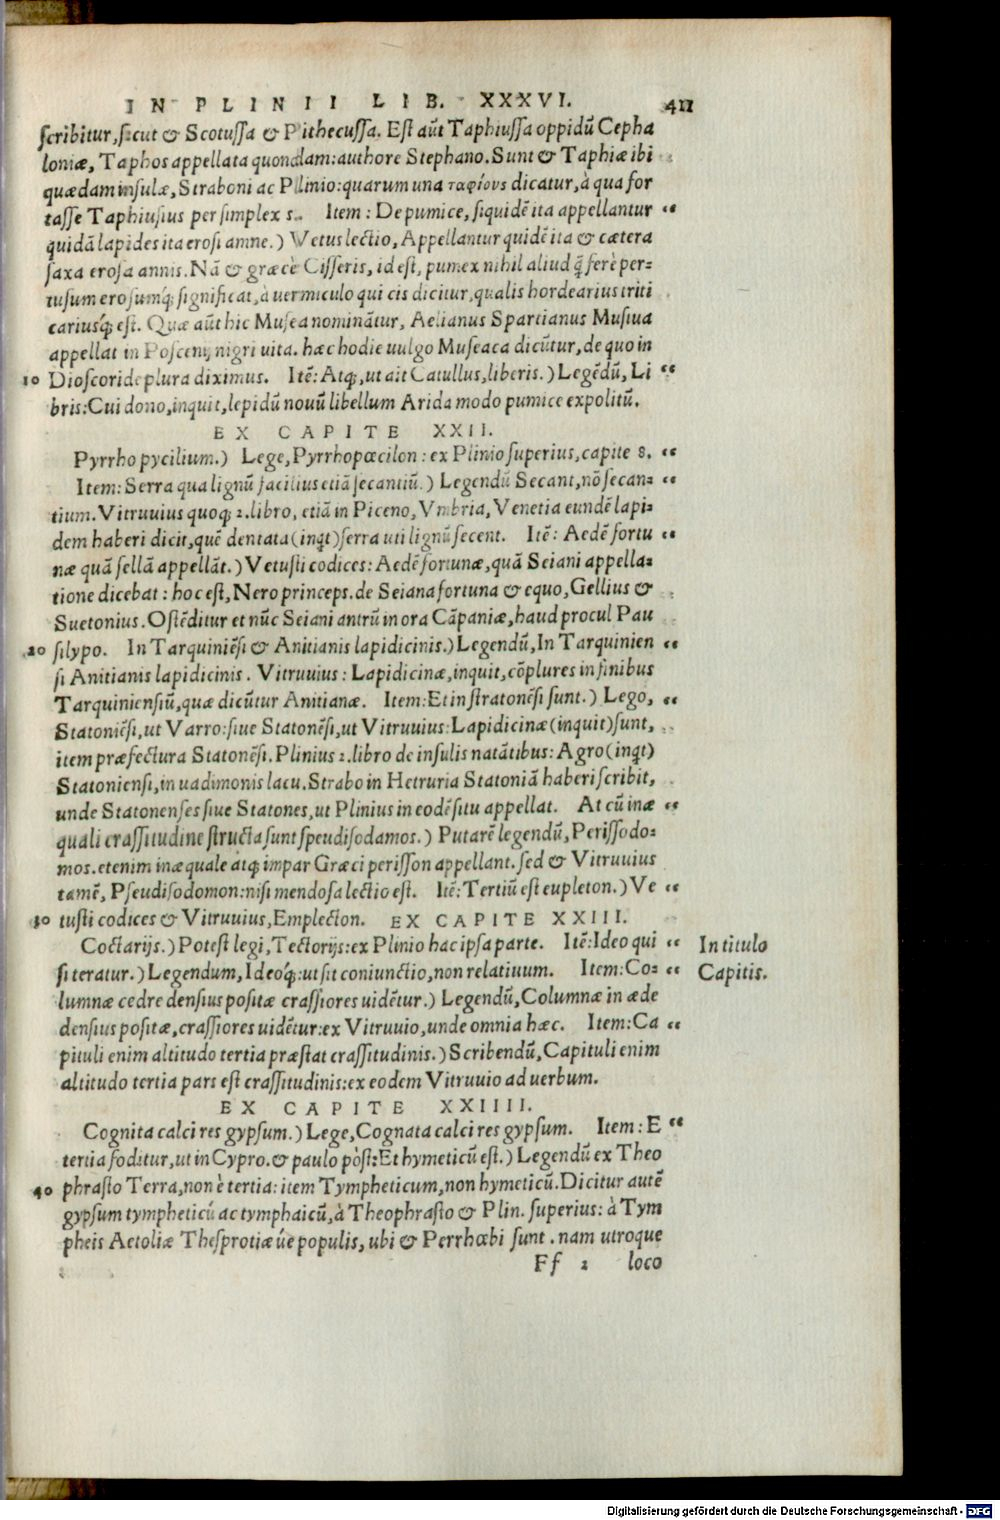 IN PLINII LIB. XXXVI. 411
scribitur, sicut & Scotussa & Pithecussa. Est aũt Taphiussa oppidũ Cepha
loniæ, Taphos appellata quondam: authore Stephano. Sunt & Taphiæ ibi
quædam insulæ, Straboni ac Plinio: quarum una ταφίους dicatur, à qua for
tasse Taphiusius per simplex s. Item: De pumice, siquidẽ ita appellantur “
quidã lapides ita erosi amne.) Vetus lectio, Appellantur quidẽ ita & cætera
saxa erosa annis. Nã & græcè Cisseris, id est, pumex nihil aliud q̃ ferè per=
tusum erosumq́; significat, à uermiculo qui cis dicitur, qualis hordearius triti
cariusq́; est. Quæ aũt hic Musea nominãtur, Aelianus Spartianus Musiua
appellat in Poscenij nigri uita. hæc hodie uulgo Museaca dicũtur, de quo in
10 Dioscoride plura diximus. Itẽ: Atq;, ut ait Catullus, liberis.) Legẽdũ, Li “
bris: Cui dono, inquit, lepidũ nouũ libellum Arida modo pumice expolitũ.
EX CAPITE XXII.
Pyrrho pycilium.) Lege, Pyrrhopœcilon: ex Plinio superius, capite 8. “
Item: Serra qua lignũ facilius etiã secantiũ.) Legendũ Secant, nõ secan= “
tium. Vitruuius quoq; 2. libro, etiã in Piceno, Vmbria, Venetia eundẽ lapi=
dem haberi dicit, quẽ dentata (inq̃t) serra uti lignũ secent. Itẽ: Aedẽ fortu “
næ quã sellã appellãt.) Vetusti codices: Aedẽ fortunæ, quã Seiani appella=
tione dicebat: hoc est, Nero princeps. de Seiana fortuna & equo, Gellius &
Suetonius. Ostẽditur et nũc Seiani antrũ in ora Cãpaniæ, haud procul Pau
20 silypo. In Tarquiniẽsi & Anitianis lapidicinis.) Legendũ, In Tarquinien “
si Anitianis lapidicinis. Vitruuius: Lapidicinæ, inquit, cõplures in finibus
Tarquiniensiũ, quæ dicũtur Anitianæ. Item: Et in stratonẽsi sunt.) Lego, “
Statoniẽsi, ut Varro: siue Statonẽsi, ut Vitruuius: Lapidicinæ (inquit) sunt,
item præfectura Statonẽsi. Plinius 2. libro de insulis natãtibus: Agro (inq̃t)
Statoniensi, in uadimonis lacu. Strabo in Hetruria Statoniã haberi scribit,
unde Statonenses siue Statones, ut Plinius in eodẽ situ appellat. At cũ inæ “
quali crassitudine structa sunt speudisodamos.) Putarẽ legendũ, Perissodo=
mos. etenim inæquale atq; impar Græci perisson appellant. sed & Vitruuius
tamẽ, Pseudisodomon: nisi mendosa lectio est. Itẽ: Tertiũ est eupleton.) Ve “
30 tusti codices & Vitruuius, Emplecton. EX CAPITE XXIII.
Coctarijs.) Potest legi, Tectorijs: ex Plinio hac ipsa parte. Itẽ: Ideo qui “ In titulo
si teratur.) Legendum, Ideoq́;: ut sit coniunctio, non relatiuum. Item: Co= “ Capitis.
lumnæ cedre densius positæ crassiores uidẽtur.) Legendũ, Columnæ in æde
densius positæ, crassiores uidẽtur: ex Vitruuio, unde omnia hæc. Item: Ca “
pituli enim altitudo tertia præstat crassitudinis.) Scribendũ, Capituli enim
altitudo tertia pars est crassitudinis: ex eodem Vitruuio ad uerbum.
EX CAPITE XXIIII.
Cognita calci res gypsum.) Lege, Cognata calci res gypsum. Item: E “
tertia foditur, ut in Cypro. & paulo pòst: Et hymeticũ est.) Legendũ ex Theo
40 phrasto Terra, non è tertia: item Tympheticum, non hymeticũ. Dicitur autẽ
gypsum tympheticũ ac tymphaicũ, à Theophrasto & Plin. superius: à Tym
pheis Aetoliæ Thesprotiæ úe populis, ubi & Perrhœbi sunt. nam utroque
Ff 2 loco
Digitalisierung gefördert durch die Deutsche Forschungsgemeinschaft - DFG